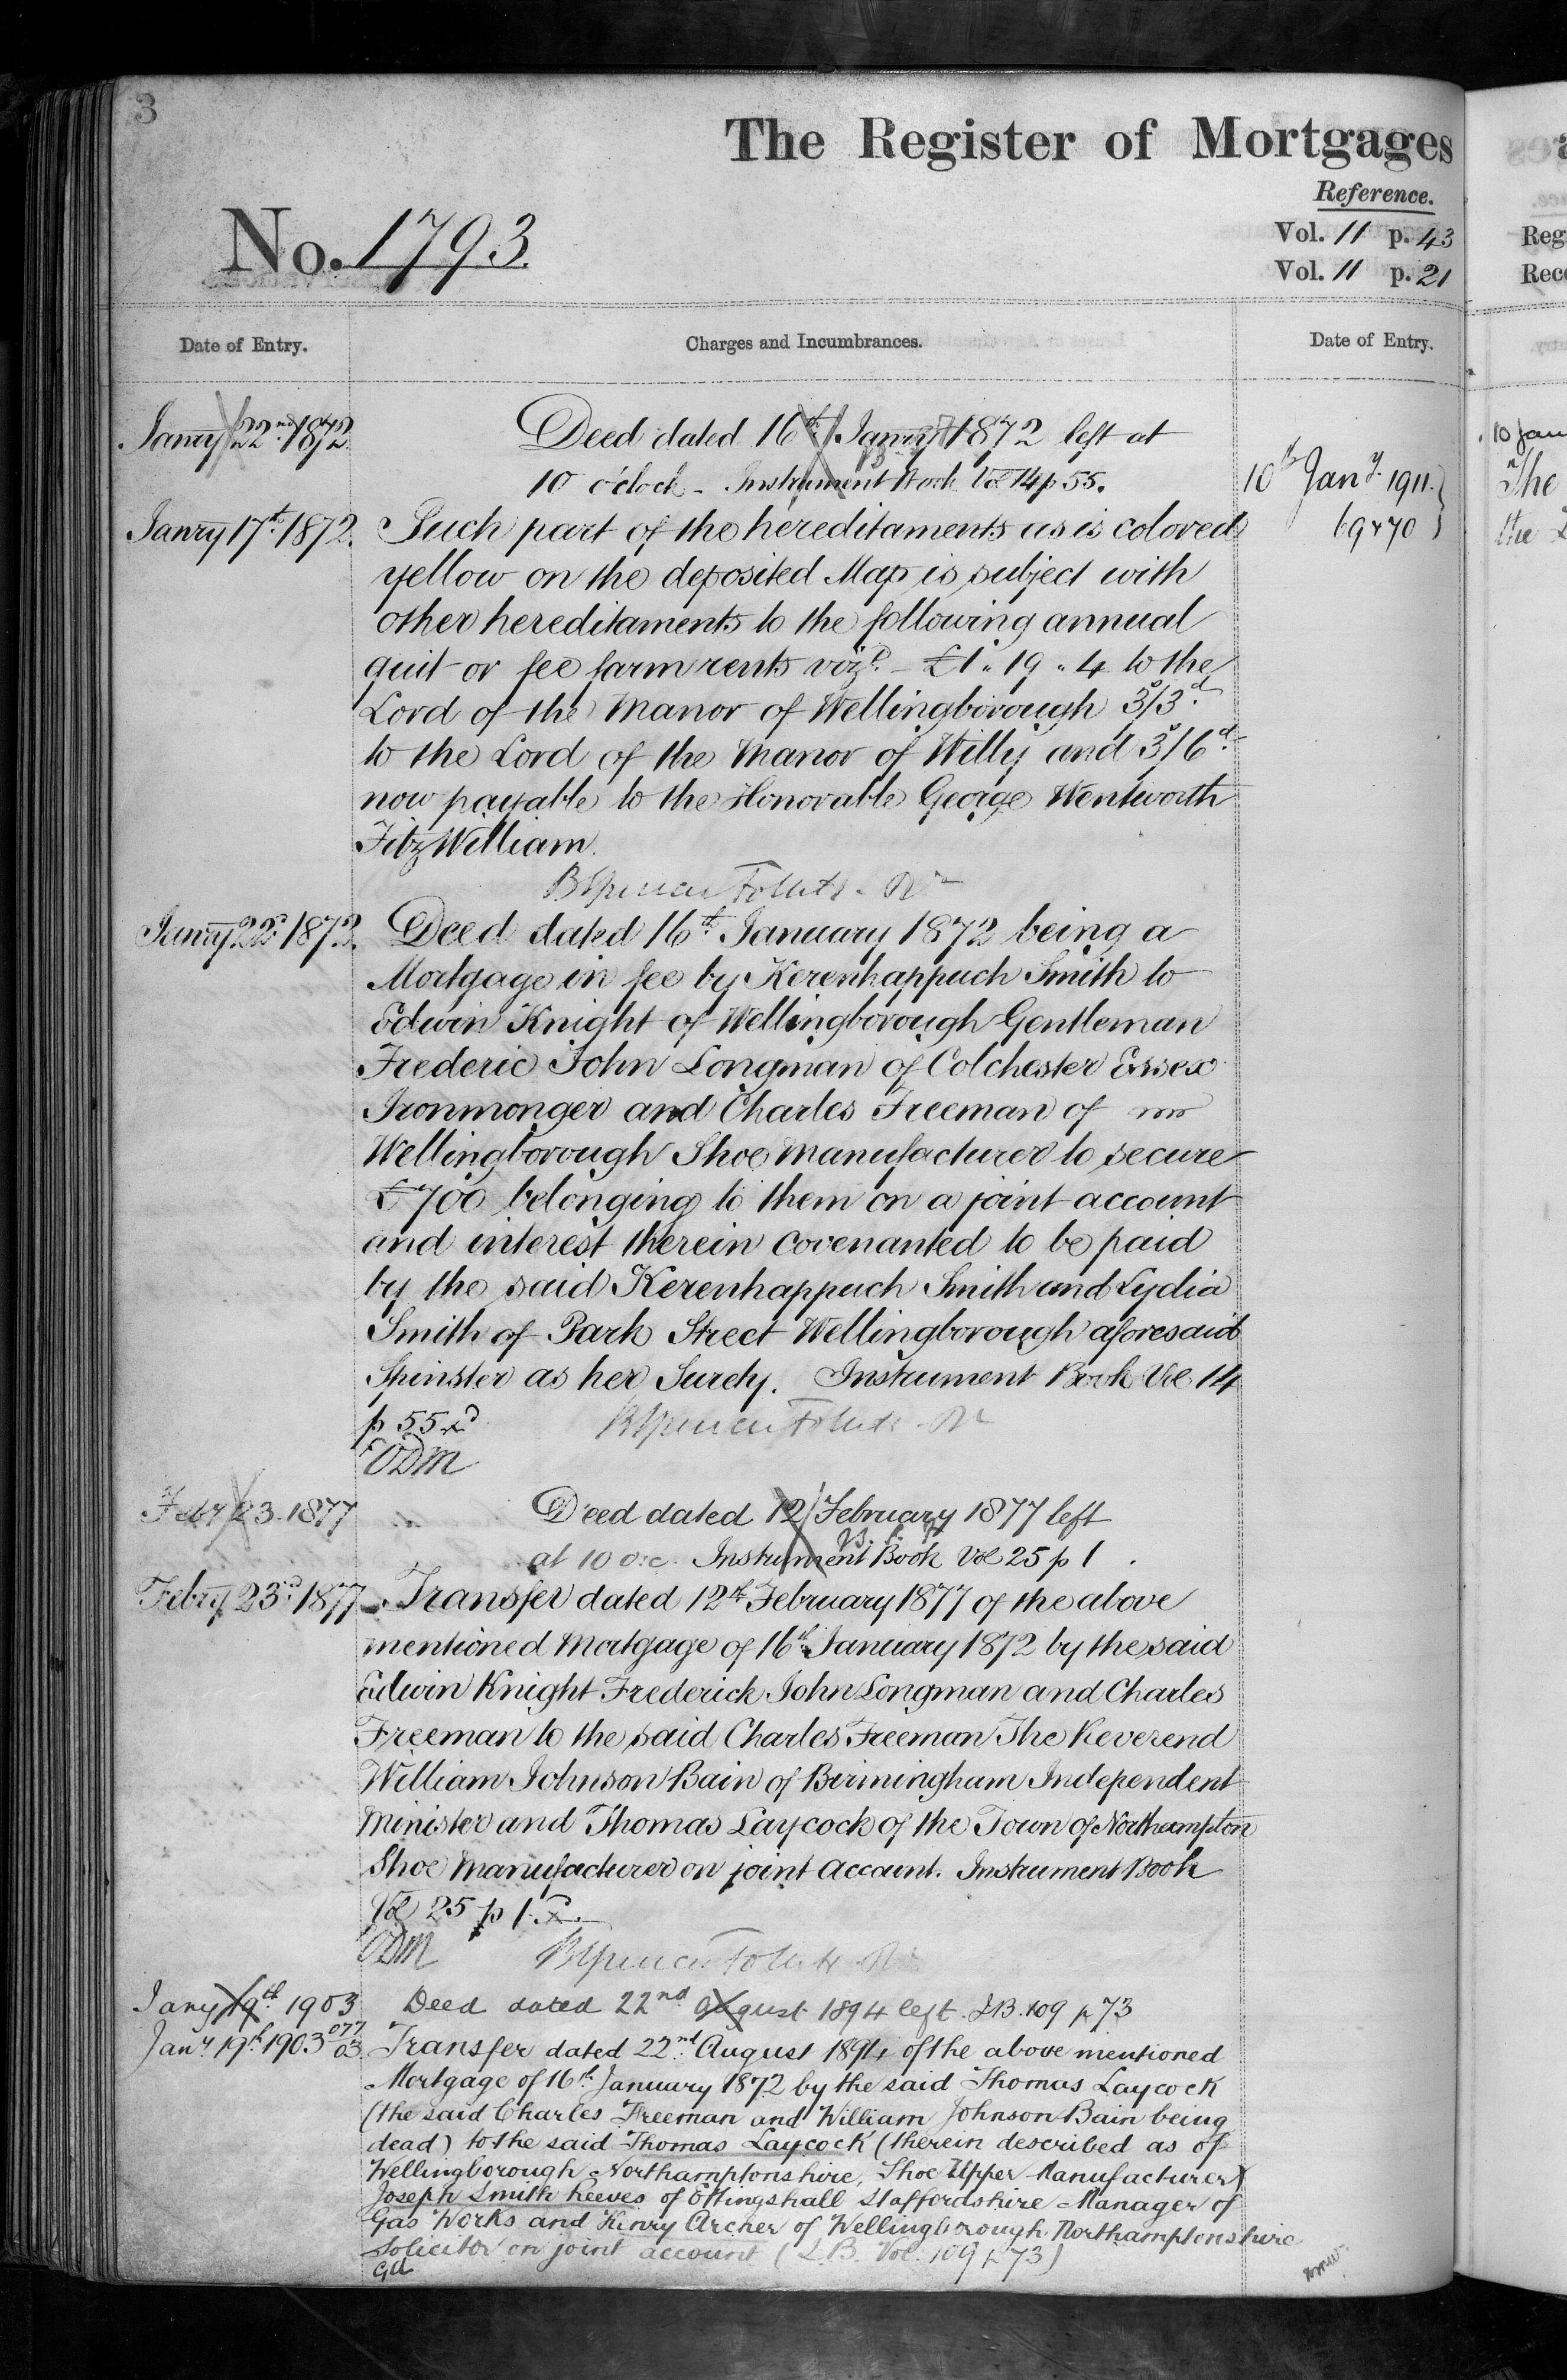 3
The Register of Mortgages
Reference.
No. 1793.
Vol. 11 p. 43
Vol. 11 p. 21
Reg
Rec
Date of Entry.
Charges and Incumbrances.
Date of Entry.
Janry 22nd 1872
Deed dated 16th Janry 1872 left at
10 o'clock - Instrument Book Vol 14 p 55.
10th Jany. 1911.
69 & 70
10 Jan
The
the
Janry 17th 1872.
Such part of the hereditaments as is colored
yellow on the deposited Map is subject with
other hereditaments to the following annual
quit or fee farm rents vizt. - £1 " 19 " 4 to the
Lord of the Manor of Wellingborough 3s/3d.
to the Lord of the Manor of Willy and 3s/6d.
now payable to the Honorable George Wentworth
FitzWilliam.
Janry 22nd 1872.
Deed dated 16th January 1872 being a
Mortgage in fee by Kerenhappuch Smith to
Edwin Knight of Wellingborough Gentleman
Frederic John Longman of Colchester Essex
Ironmonger and Charles Freeman of
Wellingborough Shoe Manufacturer to secure
£700 belonging to them on a joint account
and interest therein covenanted to be paid
by the said Kerenhappuch Smith and Lydia
Smith of Park Street Wellingborough aforesaid
Spinster as her Surety. Instrument Book Vol 14
p 55
ODM
Febr 23. 1877
Deed dated 12 February 1877 left
at 10 o.c. Instrument Book Vol 25 p 1.
Febry 23rd 1877
Transfer dated 12th February 1877 of the above
mentioned Mortgage of 16th January 1872 by the said
Edwin Knight Frederick John Longman and Charles
Freeman to the said Charles Freeman The Reverend
William Johnson Bain of Birmingham Independent
Minister and Thomas Laycock of the Town of Northampton
Shoe Manufacturer on joint Account. Instrument Book
Vol 25 p 1.
ODM
Jany 19th 1903
Deed dated 22nd August 1894 left I.B. 109 p 73
Jany 19th 1903 077/03
Transfer dated 22nd August 1894 of the above mentioned
Mortgage of 16th January 1872 by the said Thomas Laycock
(the said Charles Freeman and William Johnson Bain being
dead) to the said Thomas Laycock (therein described as of
Wellingborough Northamptonshire, Shoe Upper Manufacturer)
Joseph Smith Reeves of Ettingshall Staffordshire Manager of
Gas Works and Henry Archer of Wellingborough Northamptonshire
Solicitor on joint account (I.B. Vol. 109 p 73)